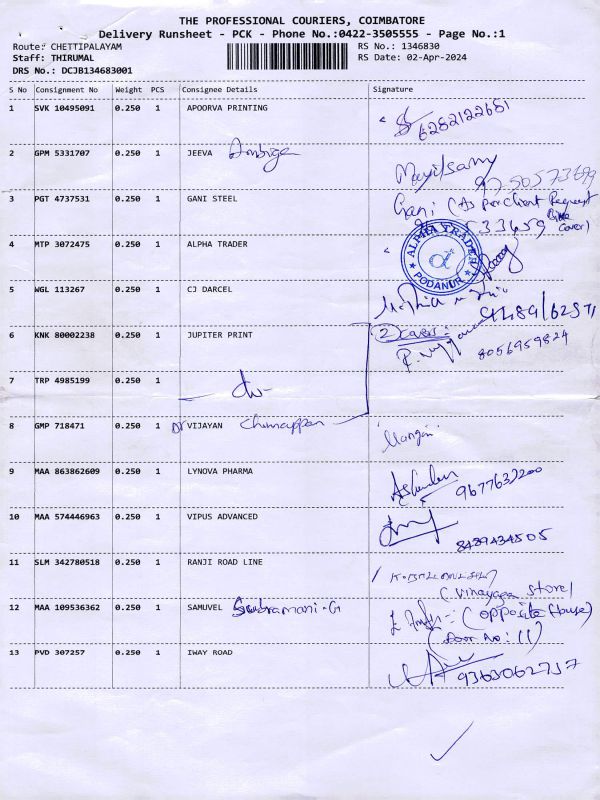 THE PROFESSIONAL COURIERS, COIMBATORE
Delivery Runsheet - PCK - Phone No.:0422-3505555 - Page No.:1
Route: CHETTIPALAYAM RS No.: 1346830
Staff: THIRUMAL RS Date: 02-Apr-2024
DRS No.: DCJB134683001
S No Consignment No Weight PCS Consignee Details Signature
1 SVK 10495091 0.250 1 APOORVA PRINTING
6282122681
2 GPM 5331707 0.250 1 JEEVA Ambiga
Mayilsamy
3 PGT 4737531 0.250 1 GANI STEEL Gani (As per client Request
cover)
4 MTP 3072475 0.250 1 ALPHA TRADER
ALPHA TRADER PODANUR
5 WGL 113267 0.250 1 CJ DARCEL
6 KNK 80002238 0.250 1 JUPITER PRINT 2 cover
8056959824
7 TRP 4985199 0.250 1
8 GMP 718471 0.250 1 Dr VIJAYAN Chinnappan
9 MAA 863862609 0.250 1 LYNOVA PHARMA
10 MAA 574446963 0.250 1 VIPUS ADVANCED
8489434505
11 SLM 342780518 0.250 1 RANJI ROAD LINE
(Vinayaga store)
12 MAA 109536362 0.250 1 SAMUVEL Subramani-G (opposite House)
(Door No: 11)
13 PVD 307257 0.250 1 IWAY ROAD
9363062737